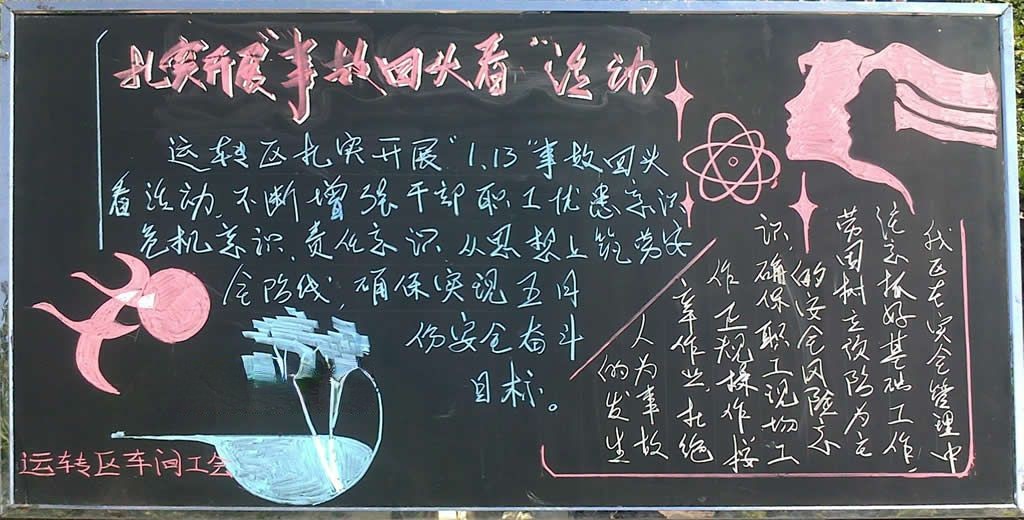 扎实开展"事故回头看"活动
运转区扎实开展"1.13"事故回头
看活动，不断增强干部职工忧患意识，
危机意识，责任意识，从思想上筑劳安
全防线，确保实现五月
份安全奋斗
目标。
我区在安全管理中
注意抓好基础工作，
劳固树立预防为主
的安全风险意
识，确保职工现场工
作卫规操作按
章作业，杜绝
人为事故
的发生
运转区车间工会